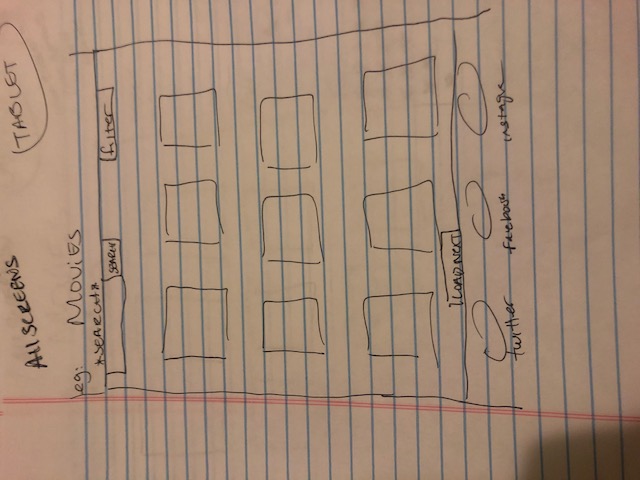 All SCREENS
TABLET
eg: MOViES
*SEARCH*
SEARCH
filter
LOAD NEXT
twitter facebook instagr